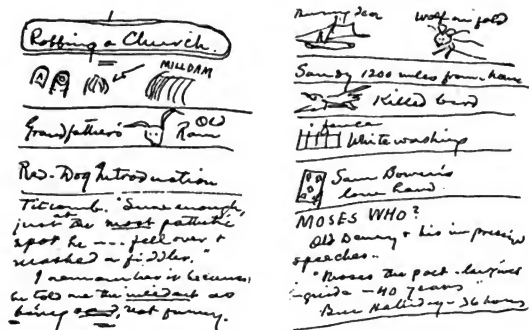 Robbing a Church.
MILLDAM
Grandfather's Old Ram
Red-Dog Introduction
Titcomb. "Sure enough,
just at the most pathetic
spot he --- fell over &
mashed a fiddler."
I remember is because
he told me the incident as
being sad, not funny.
wolf on fold
Sandy 1200 miles from home
Killed bird
fence
Whitewashing
Sam Bowen's
lone hand.
MOSES WHO?
Old Davey & his imprecise
speeches.
"Moses the poet-lawgiver
-guide - 40 years"
Ben Halliday - 36 hours